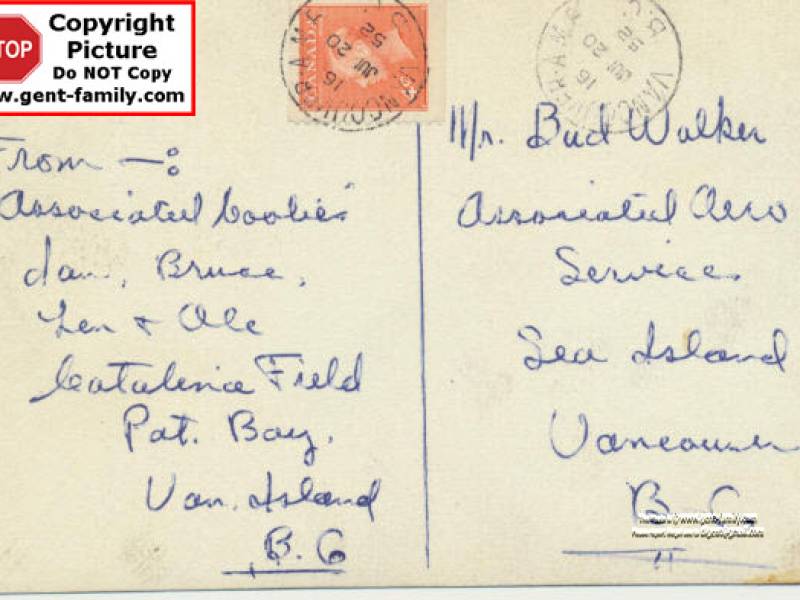 STOP
Copyright
Picture
Do NOT Copy
w.gent-family.com
CANADA
VANCOUVER
16
JUL 20
52
B.C.
VANCOUVER
16
JUL 20
52
B.C.
From —:
Associated Coolies"
Ian, Bruce,
Len & Ole
Catalina Field
Pat. Bay,
Van. Island
B.C
Mr. Bud Walker
Associated Aero
Services
Sea Island
Vancouver
B.C.